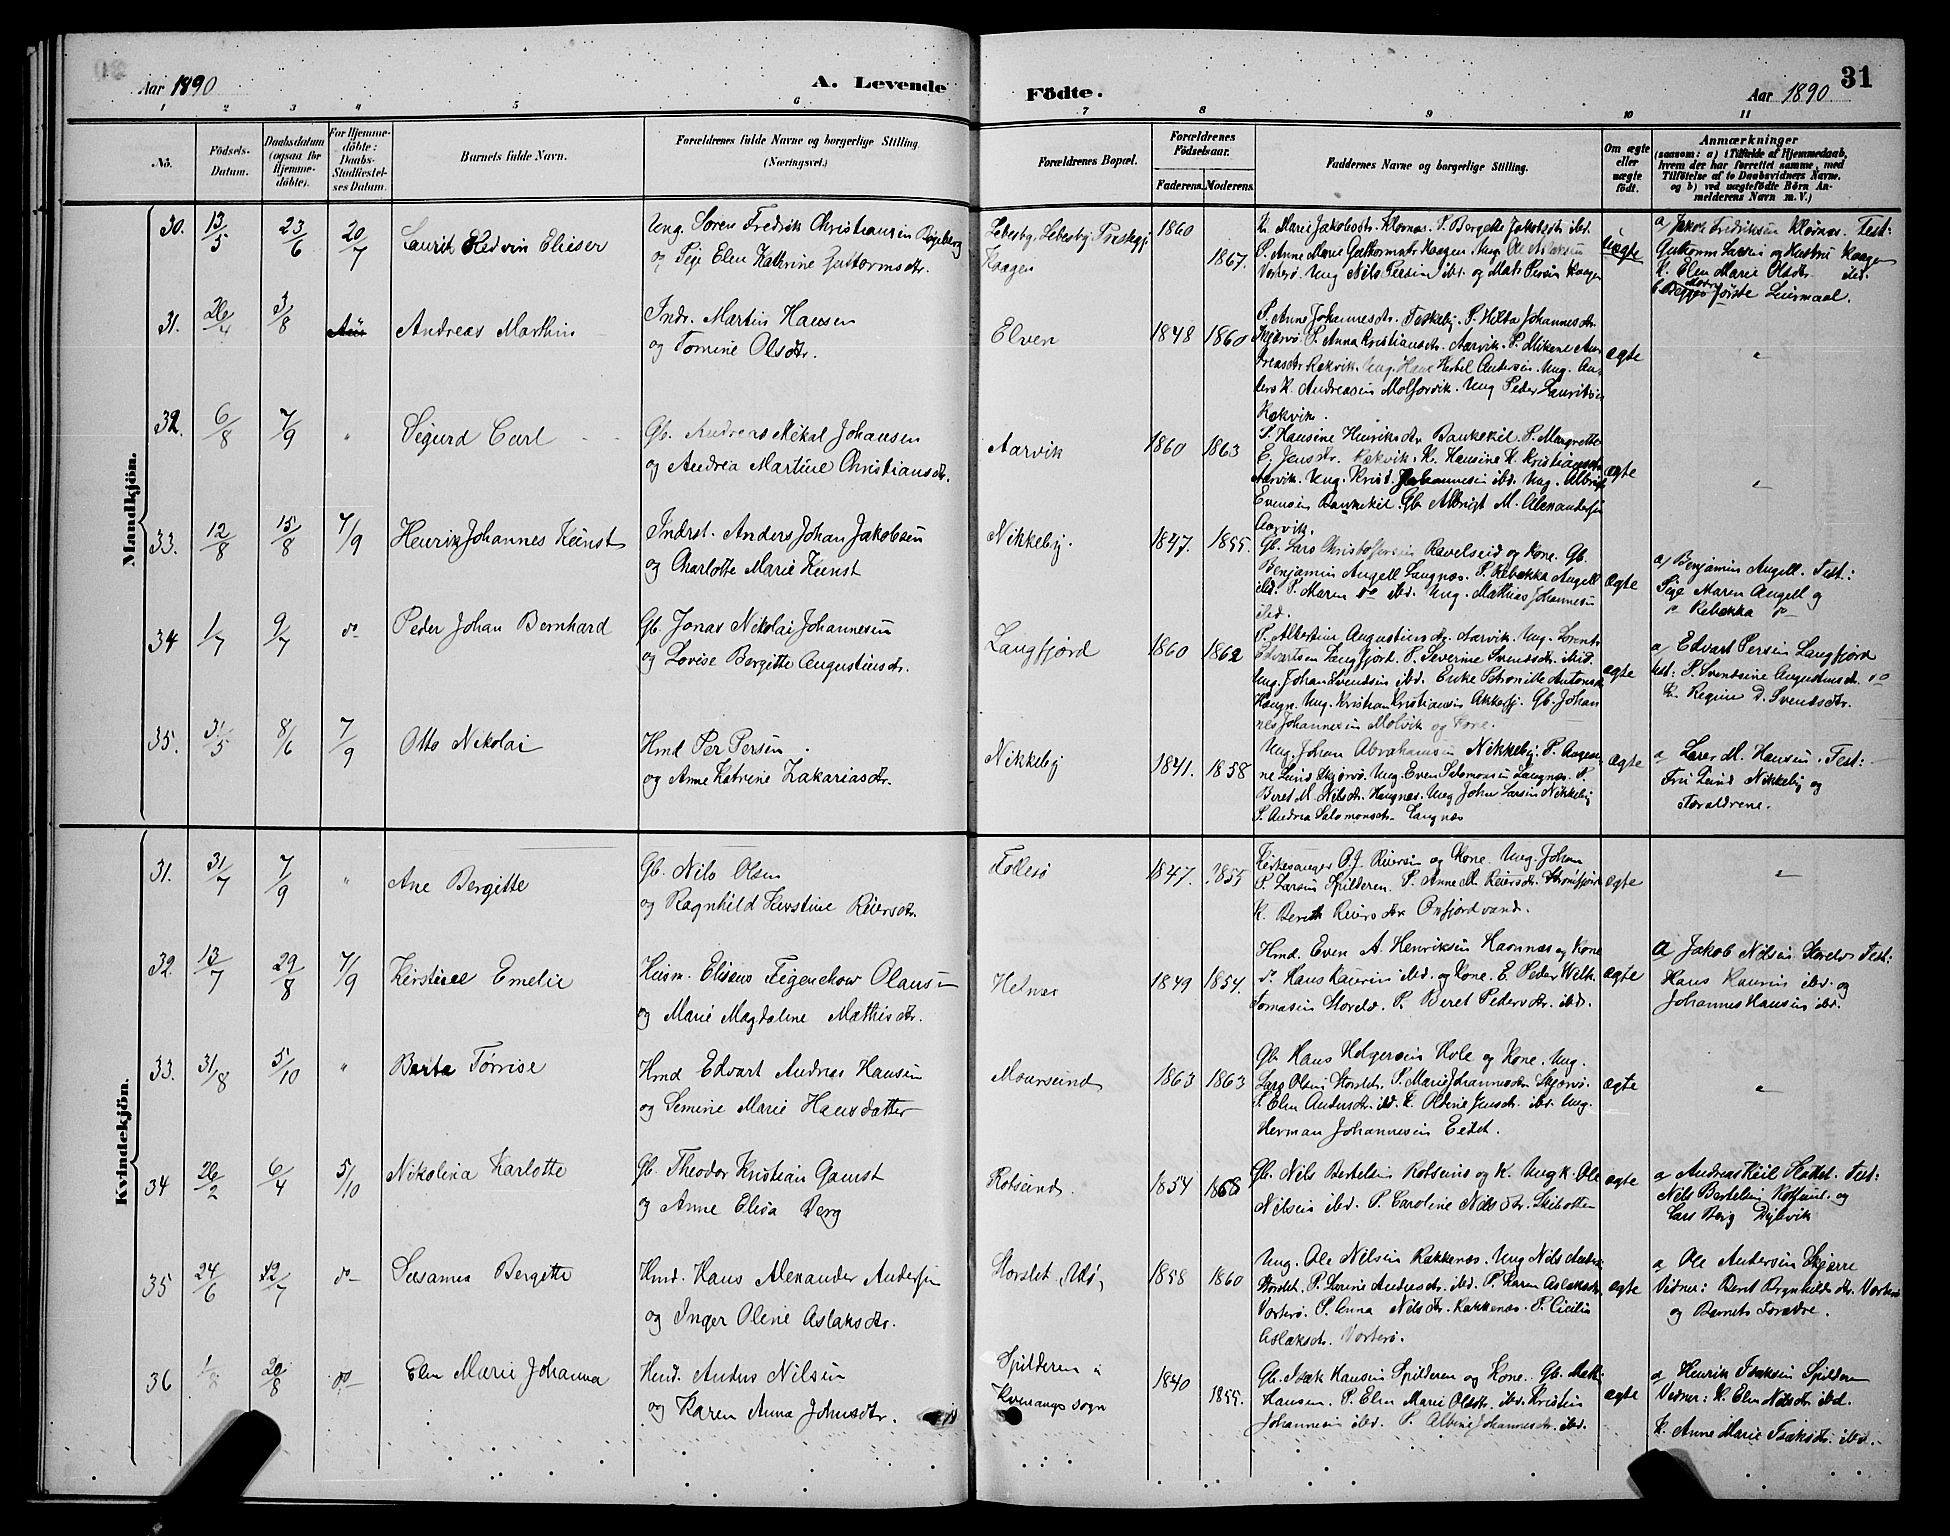 Aar 1890
A. Levende
Födte.
Aar 1890
31
1 2 3 4 5 6 7 8 9 10 11
No.
Födsels-Datum.
Daabsdatum (ogsaa for Hjemme-döbte).
For Hjemme-döbte: Daabs-Stadfæstel-ses Datum.
Barnets fulde Navn.
Forældrenes fulde Navne og borgerlige Stilling.
(Næringsvei.)
Forældrenes Bopæl.
Forældrenes Födselsaar.
Faderens. Moderens.
Faddernes Navne og borgerlige Stilling.
Om ægte eller uægte födt.
Anmærkninger
(saasom: a) i Tilfælde af Hjemmedaab,
hvem der har forrettet samme, med
Tilföielse af to Daabsvidners Navne,
og b) ved uægtefödte Börn An-
melderens Navn m. V.)
Mandkjön.
30. 13/5 23/6 20/7
Laurits Edvin Elieser
Ung. Sören Fredrik Christiansen
og Pige Elen Kathrine Guttormsdtr.
Lebesby
Haagen
1860
1867.
K. Marie Jakobsdtr. P. Bergette Jakobsdtr ibd.
P. Anne Marie Guttormsdtr Haagen. Ung. Ole Aslaksen
Vorterö. Ung Nils Persen ibd. og Mats Persen Haagen
uægte
a, Jakob Fredriksen Test:
Guttorm Larsen og Hustru Haagen
K. Elen Marie Olsdtr. ibd.
b Begges förste Leiermaal.
31. 26/4 3/8
Andreas Marthin
Indr. Martin Hansen
og Tomine Olsdtr.
Elven
1848 1860
P. Anne Johannesdtr. P. Hilda Johannesdtr.
Skjervö. P. Anna Kristiansdtr. Aarvik. P.
Rakvik. Ung. Hans Andersen. Ung. An-
ders K. Andreasen Molforvik. Ung Peder Lauritsen
Rakvik.
ægte
"
32. 6/8 7/9 "
Sigurd Carl
Gb. Andreas Mikal Johansen
og Andrea Martine Christiansdtr.
Aarvik
1860 1863
P. Hansine Henriksdtr Bankekil. P. Margrethe
E. Jensdtr. Rakvik. K. Hansine K. Kristiansdtr
Aarvik. Ung. Krist. Johannesen ibd. Ung. Albrigt
Evensen Bankekil. Gb Albrigt M. Alexandersen
Aarvik.
ægte
"
33. 12/8 15/8 7/9
Henrik Johannes Kunst
Indrst. Anders Johan Jakobsen
og Charlotte Marie Kunst
Nikkeby.
1847. 1855.
Gb. Lars Christoffersen Ravelseid og Kone. Gb.
Benjamin Angell Langnæs. P. Rebekka Angell
ibd. P. Maren do ibd. Ung. Mathias Johannesen
ibd.
ægte
a, Benjamin Angell. Test:
Pige Maren Angell og
" Rebekka do
34 1/7 9/7 do
Peder Johan Bernhard
Gb. Jonas Nikolai Johannesen
og Lovise Bergitte Augustinsdtr.
Langfjord
1860 1862
P. Albertine Augustinsdtr. Aarvik. Ung. Lorents
Edvartsen Langfjord. P. Severine Svendsdtr. ibid.
Ung. Johan Svendsen ibd. Enke Petronille Antonsdtr
Ung. Kristian Kristiansen Gb. Johan-
nes Johannesen Molvik og Kone.
ægte
a, Edvart Persen Langfjord
test: P. Svendsine Augustinsdtr. do
K. Regine D. Svendsdtr.
35. 31/5 8/6 7/9
Otto Nikolai
Hmd Per Persen
og Anne Katrine Zakariasdtr.
Nikkeby
1841. 1858
Ung. Johan Abrahamsen Nikkeby P.
Lund Skjervö. Ung Even Salomonsen Langnæs. P.
Beret M. Nilsdtr. Ung John Larsen Nikkeby
P. Andrea Salomonsdtr. Langnæs
ægte
a, Lærer M. Hansen. Test:
Fru Lund Nikkeby og
Forældrene.
Kvindekjön.
31. 31/7 7/9 "
Ane Bergitte
Gb. Nils Olsen
og Ragnhild Kirstine Reiersdtr.
Follesö
1847. 1855
Kirkesanger O.J. Reiersen og Kone. Ung. Johan
P. Larsen Spilderen. P. Anne M. Reiersdtr.
K. Berith Reiersdtr Oxfjordvand.
ægte
"
32. 13/7 29/8 7/9
Kirstine Emelie
Husm. Eliseus Figenchow Olausen
og Marie Magdalene Mathisdtr.
1849 1854.
Hmd. Even A. Henriksen Havnnæs og Kone
do Hans Hansen ibd. og Kone. E. Peder Welk.
Tomasen P. Beret Pedersdtr. ibd.
ægte
a Jakob Nilsen Test:
Hans Hansen ibd. og
Johannes Hansen ibd.
33. 31/8 5/10 "
Berta Törrise
Hmd Edvart Andreas Hansen
og Semine Marie Hansdatter
Maursund
1863 1863
Gb. Hans Holgersen Hole og Kone. Ung.
Lars Olsen Storslet. P. Marie Johannesdtr Skjervö.
P. Elen Andersdtr. ibd. K. Oldine Jensdtr. ibd. Ung.
Herman Johannesen Eidet.
ægte
"
34 26/2 6/4 5/10
Nikolina Karlotte
Gb. Theodor Kristian Gamst
og Anne Elisa Berg
Rotsund.
1854 1868
Gb. Nils Bertelsen Rotsund og K. Ungk. Ole
Nilsen ibd. P. Caroline Nilsdtr. Skibotten
ægte
a Andreas Keil Test:
Nils Bertelsen Rotsund. og
Lars Berg
35 24/6 12/7 do
Susanna Bergitte
Hmd. Hans Alexander Andersen
og Inger Oline Aslaksdtr.
Storslet, Ulö,
1858 1860
Ung. Ole Nilsen Rakkenæs. Ung Nils Andersen
Storslet. P. Lovise Andersdtr. ibd. P. Karen Aslaksdtr.
Vorterö. P. Anna Nilsdtr. Rakkenæs. P. Cicilie
Aslaksdtr. Vorterö.
ægte
a, Ole Andersen
Vidner: Beret Vorterö
og Barnets Forældre.
36 1/8 20/8 do
Elen Marie Johanna
Hmd. Anders Nilsen
og Karen Anna Johnsdtr.
Spilderen i
Kvenangs sogn
1840
1855.
Gb. Isak Hansen Spilderen og Kone. Gb. Math.
Hansen. P. Elen Marie Olsdtr. ibd. Kristen
Johannesen ibd. P. Albine Johannesdtr. ibd.
ægte
a, Henrik Isaksen Spilderen
Vidner: K. Elen Nilsdtr ibd.
K. Anne Marie Isaksdtr. ibd.